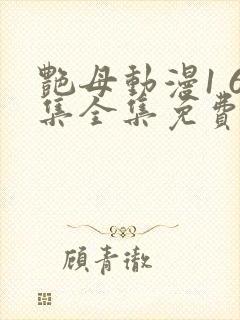 艷母動漫1 6
集全集免費
顧青徹